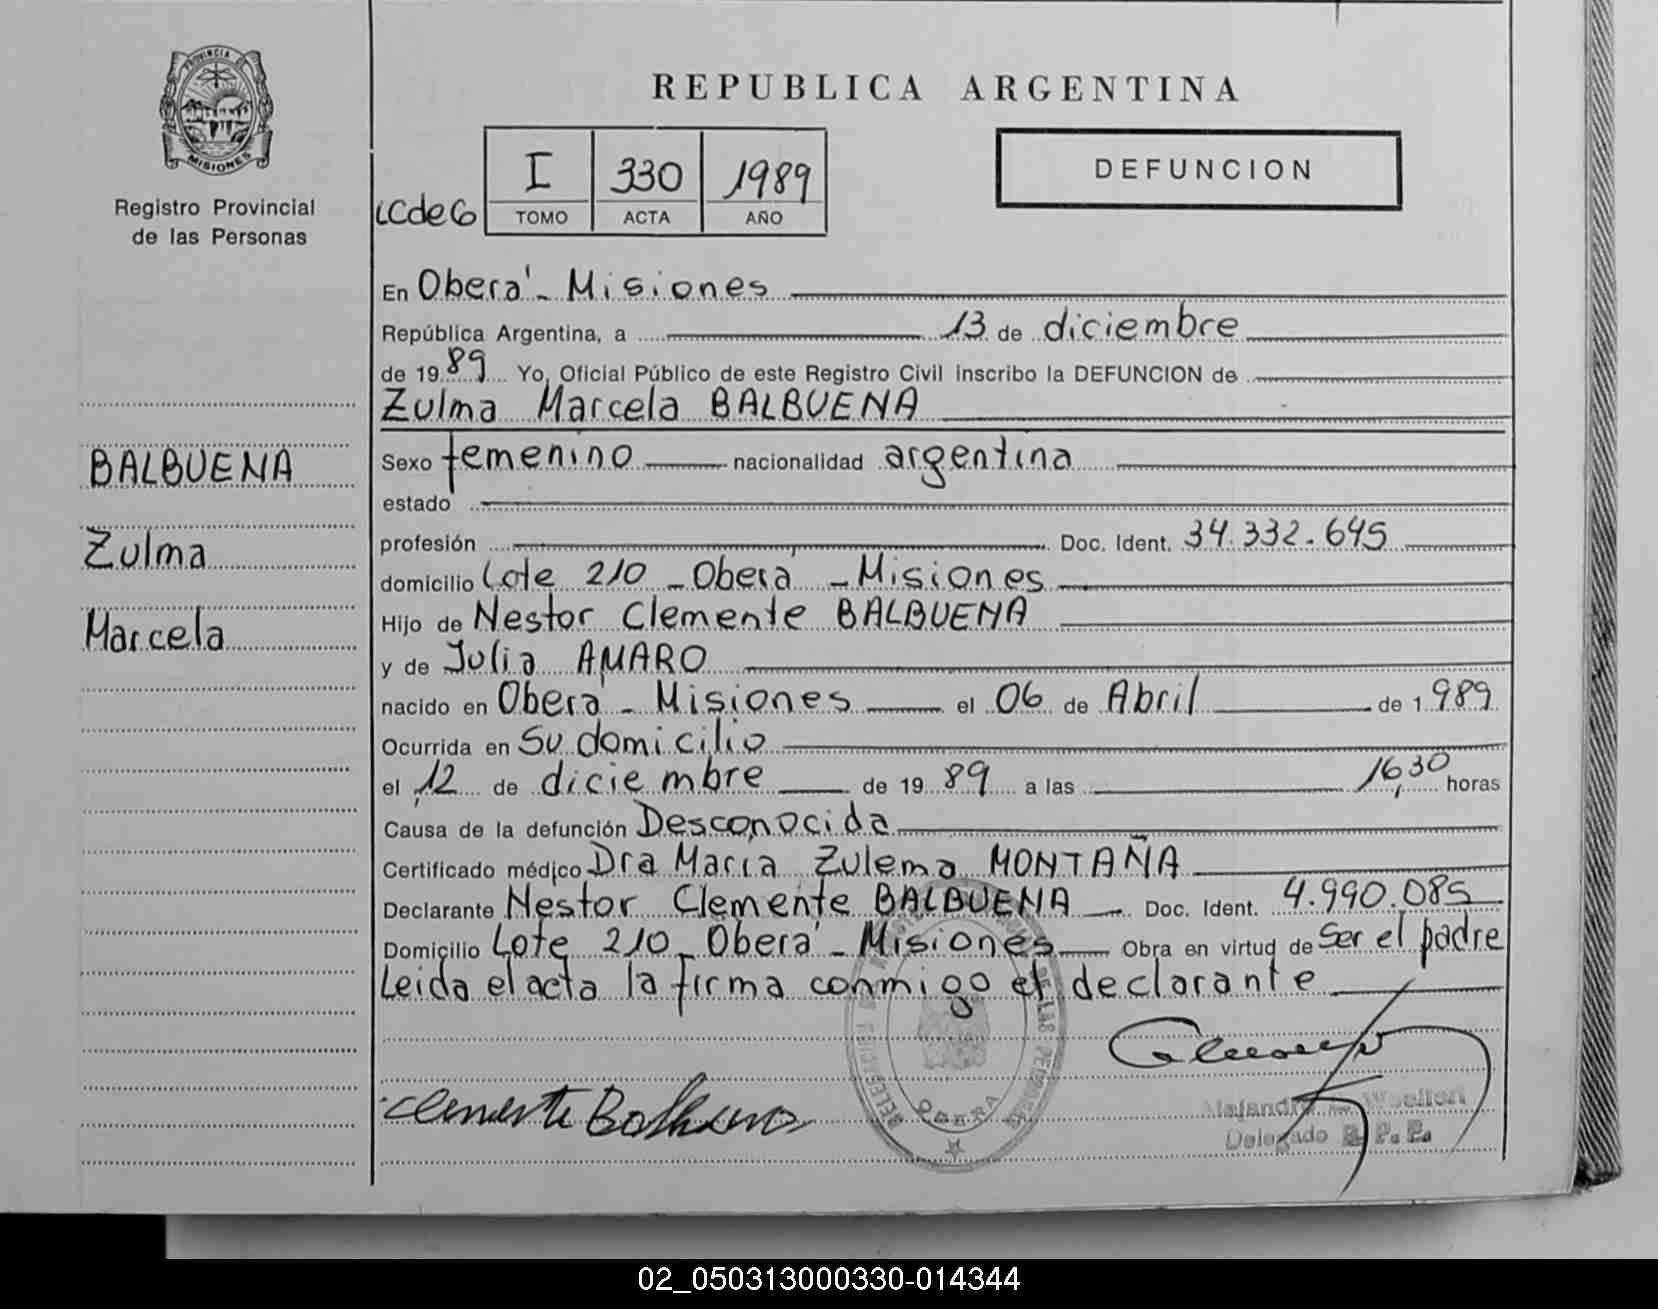 PROVINCIA DE
MISIONES
Registro Provincial
de las Personas
BALBUENA
Zulma
Marcela
REPUBLICA ARGENTINA
I 330 1989
TOMO ACTA AÑO
DEFUNCION
En Oberá - Misiones
República Argentina, a 13 de diciembre
de 1989 Yo, Oficial Público de este Registro Civil inscribo la DEFUNCION de
Zulma Marcela BALBUENA
Sexo femenino nacionalidad argentina
estado
profesión Doc. Ident. 34.332.645
domicilio Lote 210 - Oberá - Misiones
Hijo de Nestor Clemente BALBUENA
y de Julia AMARO
nacido en Oberá - Misiones el 06 de Abril de 1989
Ocurrida en Su domicilio
el 12 de diciembre de 1989 a las 16,30 horas
Causa de la defunción Desconocida
Certificado médico Dra María Zulema MONTAÑA
Declarante Nestor Clemente BALBUENA Doc. Ident. 4.990.085
Domicilio Lote 210 - Oberá - Misiones Obra en virtud de Ser el padre
Leida el acta la firma conmigo el declarante
Clemente Balbuena
OBERA
Delegado R. P. P.
02_050313000330-014344